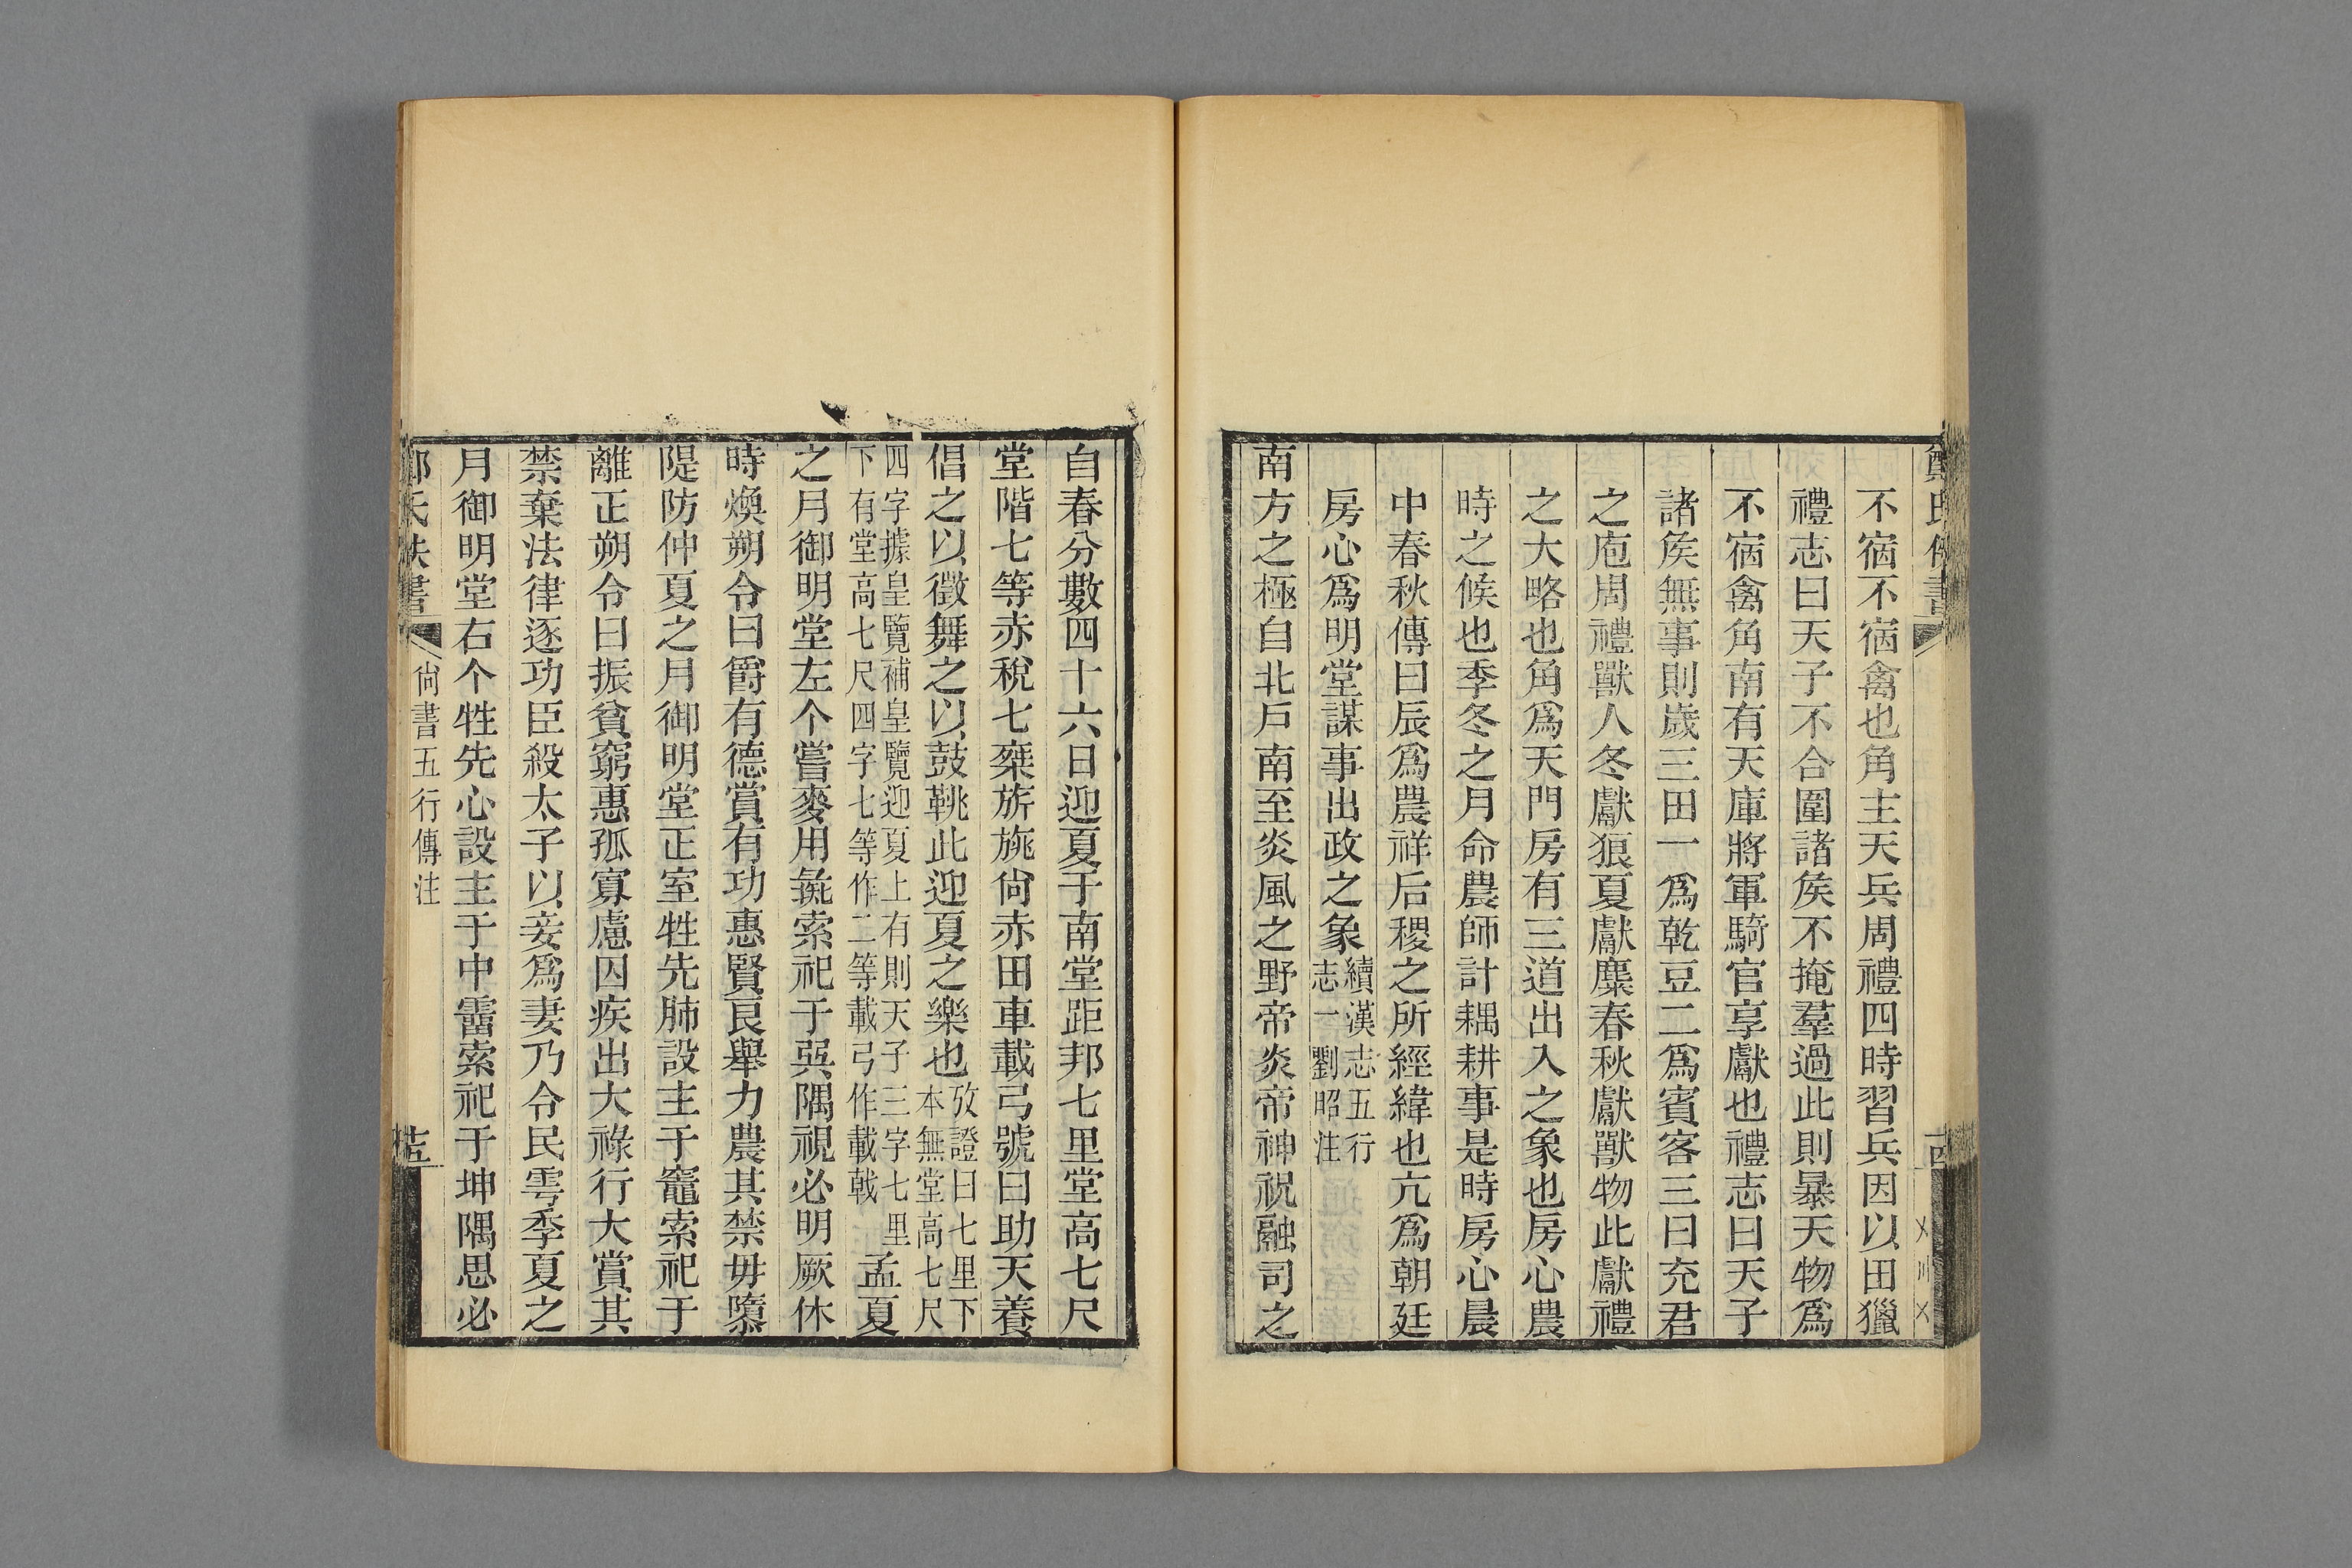 不宿不宿禽也角主天兵周禮四時習兵因以田獵
禮志曰天子不合圍諸矦不掩羣過此則暴天物爲
不宿禽角南有天庫將軍騎官享獻也禮志曰天子
諸矦無事則歲三田一爲乾豆二爲賓客三曰充君
之庖周禮獸人冬獻狼夏獻麋春秋獻獸物此獻禮
之大略也角爲天門房有三道出入之象也房心農
時之候也季冬之月命農師計耦耕事是時房心晨
中春秋傳曰辰爲農祥后稷之所經緯也亢爲朝廷
房心爲明堂謀事出政之象續漢志五行志一劉昭注
南方之極自北戸南至炎風之野帝炎帝神祝融司之
自春分數四十六日迎夏于南堂距邦七里堂高七尺
堂階七等赤稅七椉旂旐尙赤田車載弓號曰助天養
倡之以徵舞之以鼓鞉此迎夏之樂也攷證曰七里下本無堂高七尺
四字據皇覽補皇覽迎夏上有則天子三字七里下有堂高七尺四字七等作二等載弓作載戟孟夏
之月御明堂左个嘗麥用彘索祀于巽隅視必明厥休
時煥朔令曰爵有德賞有功惠賢良舉力農其禁毋隳
隄防仲夏之月御明堂正室牲先肺設主于竈索祀于
離正朔令曰振貧窮惠孤寡慮囚疾出大祿行大賞其
禁棄法律逐功臣殺太子以妾爲妻乃令民雩季夏之
月御明堂右个牲先心設主于中霤索祀于坤隅思必
氏佚書 尙書五行傳注